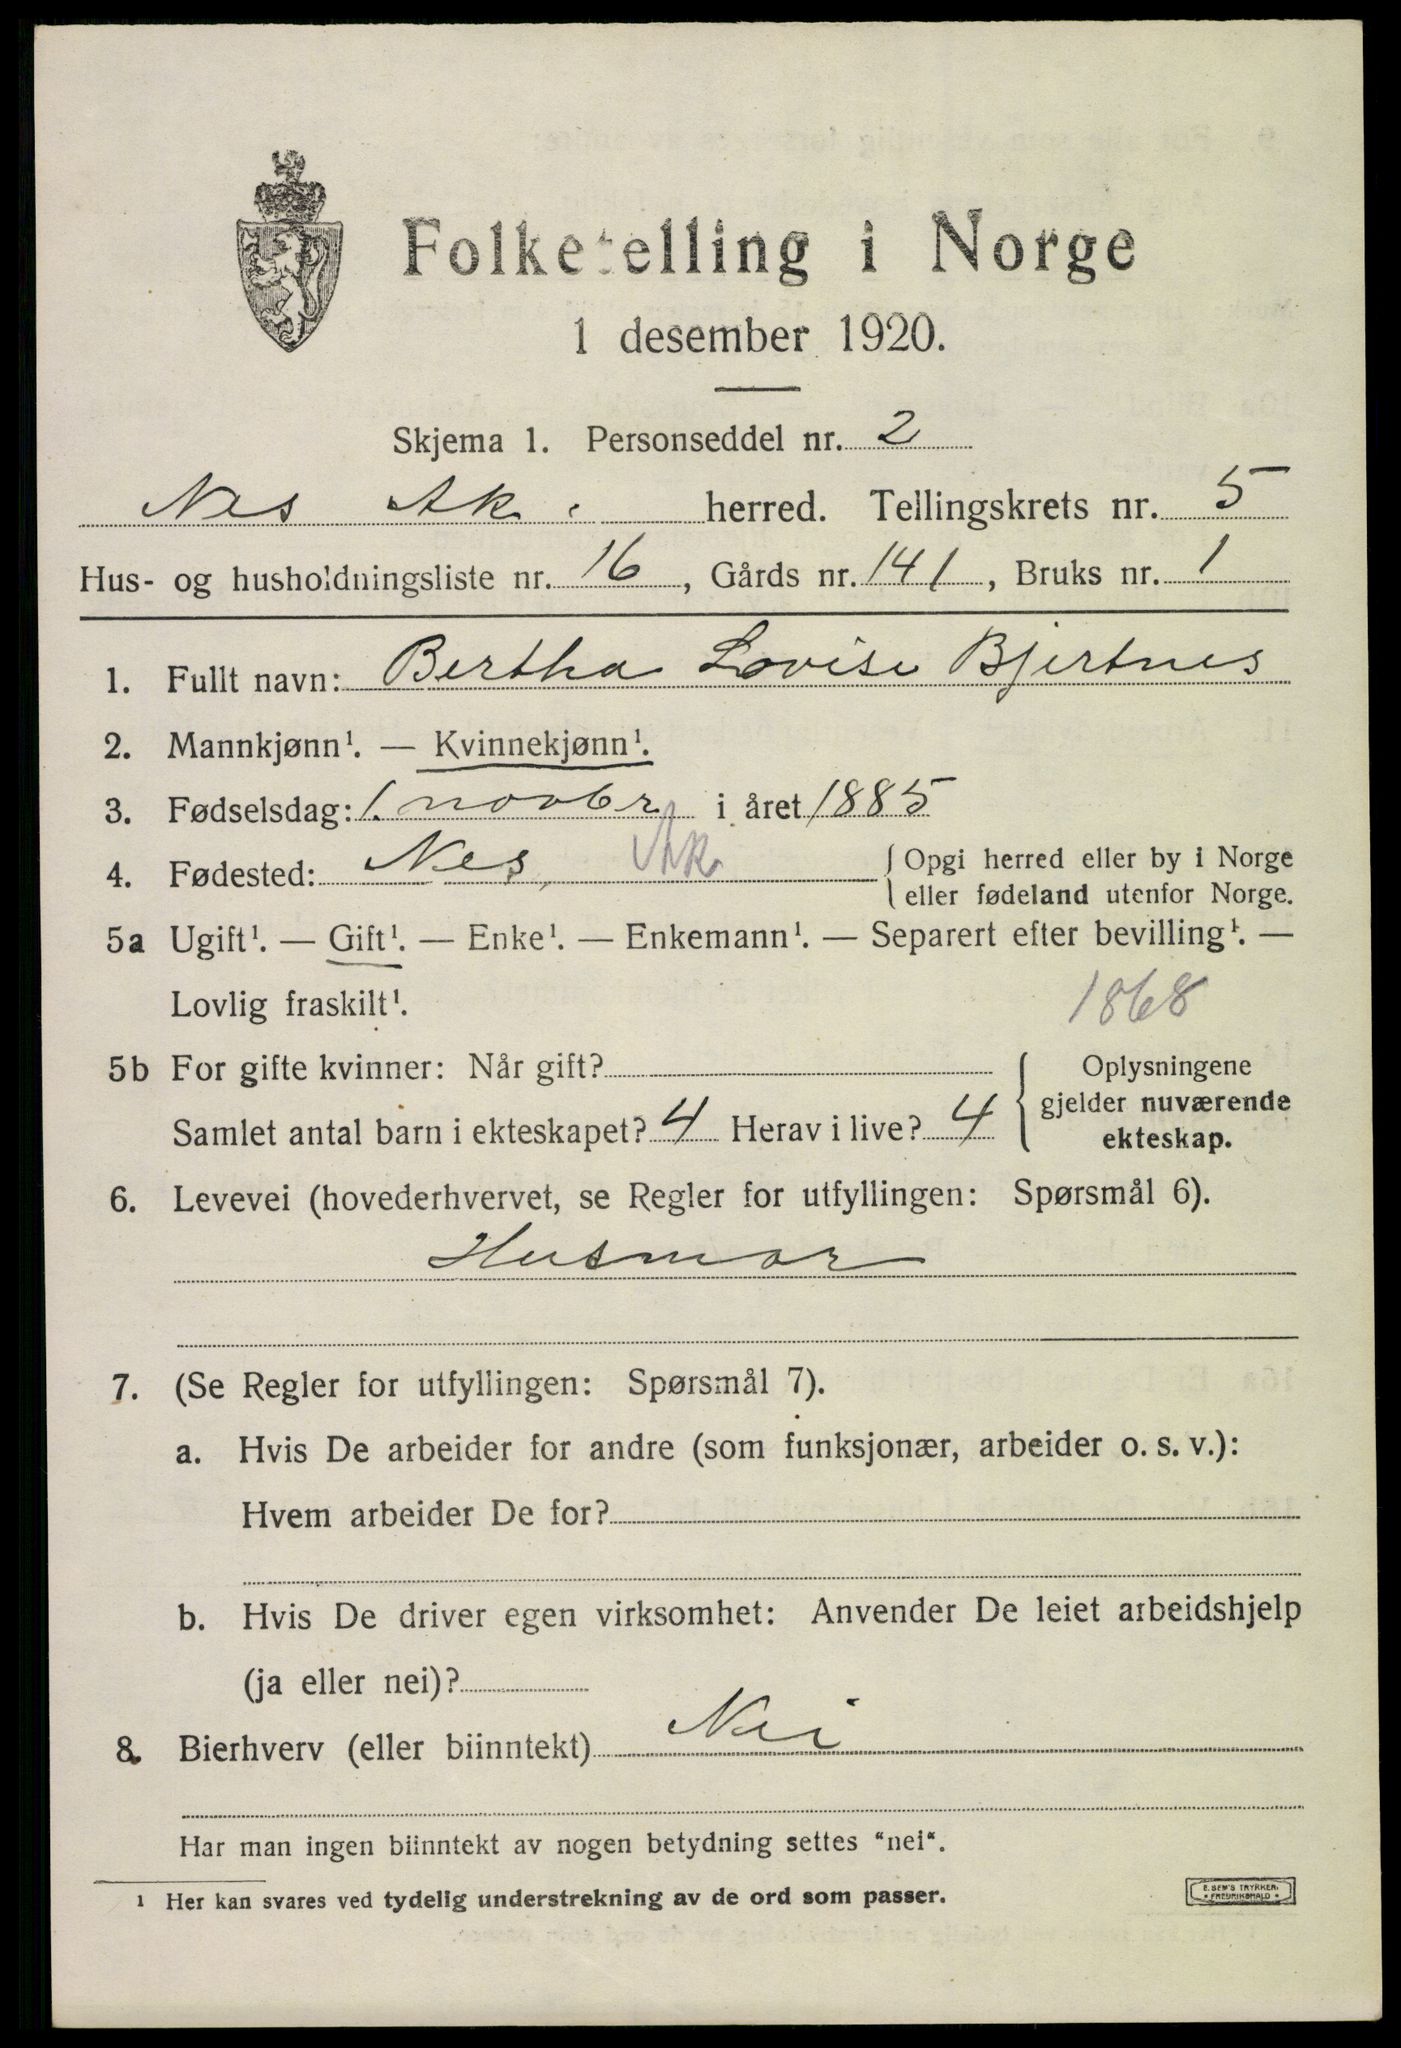 Folketelling i Norge
1 desember 1920.
Skjema 1. Personseddel nr. 2
Nes Ak. herred. Tellingskrets nr. 5
Hus- og husholdningsliste nr. 16, Gårds nr. 141, Bruks nr. 1
1. Fullt navn: Bertha Lovise Bjertnes
2. Mannkjønn¹. — Kvinnekjønn¹.
3. Fødselsdag: 1. novbr i året 1885
4. Fødested: Nes, Ak. { Opgi herred eller by i Norge
eller fødeland utenfor Norge.
5a Ugift¹. — Gift¹. — Enke¹. — Enkemann¹. — Separert efter bevilling¹. —
Lovlig fraskilt¹. 1868
5b For gifte kvinner: Når gift? { Oplysningene
gjelder nuværende
Samlet antal barn i ekteskapet? 4 Herav i live? 4 ekteskap.
6. Levevei (hovederhvervet, se Regler for utfyllingen: Spørsmål 6).
Husmor
7. (Se Regler for utfyllingen: Spørsmål 7).
a. Hvis De arbeider for andre (som funksjonær, arbeider o. s. v.):
Hvem arbeider De for?
b. Hvis De driver egen virksomhet: Anvender De leiet arbeidshjelp
(ja eller nei)?
8. Bierhverv (eller biinntekt) Nei
Har man ingen biinntekt av nogen betydning settes "nei".
¹ Her kan svares ved tydelig understrekning av de ord som passer.
E. SEM'S TRYKKERI
• FREDRIKSHALD •